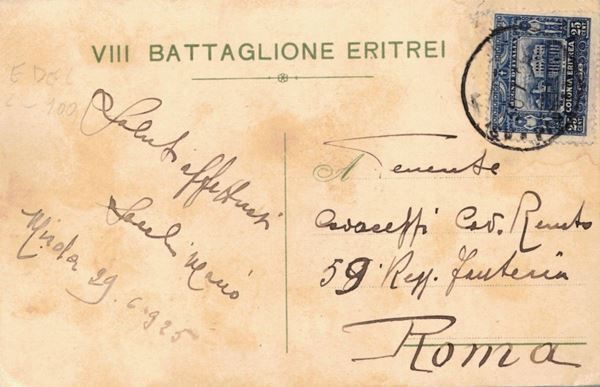 VIII BATTAGLIONE ERITREI
E DEL
L - 100
Saluti affettuosi
Mario
29.6.925
25
CENT
COLONIA ERITREA
POSTE ITALIANE
25
CENT
A Tenente
Cavaceppi Cav. Renato
59° Regg. Fanteria
Roma